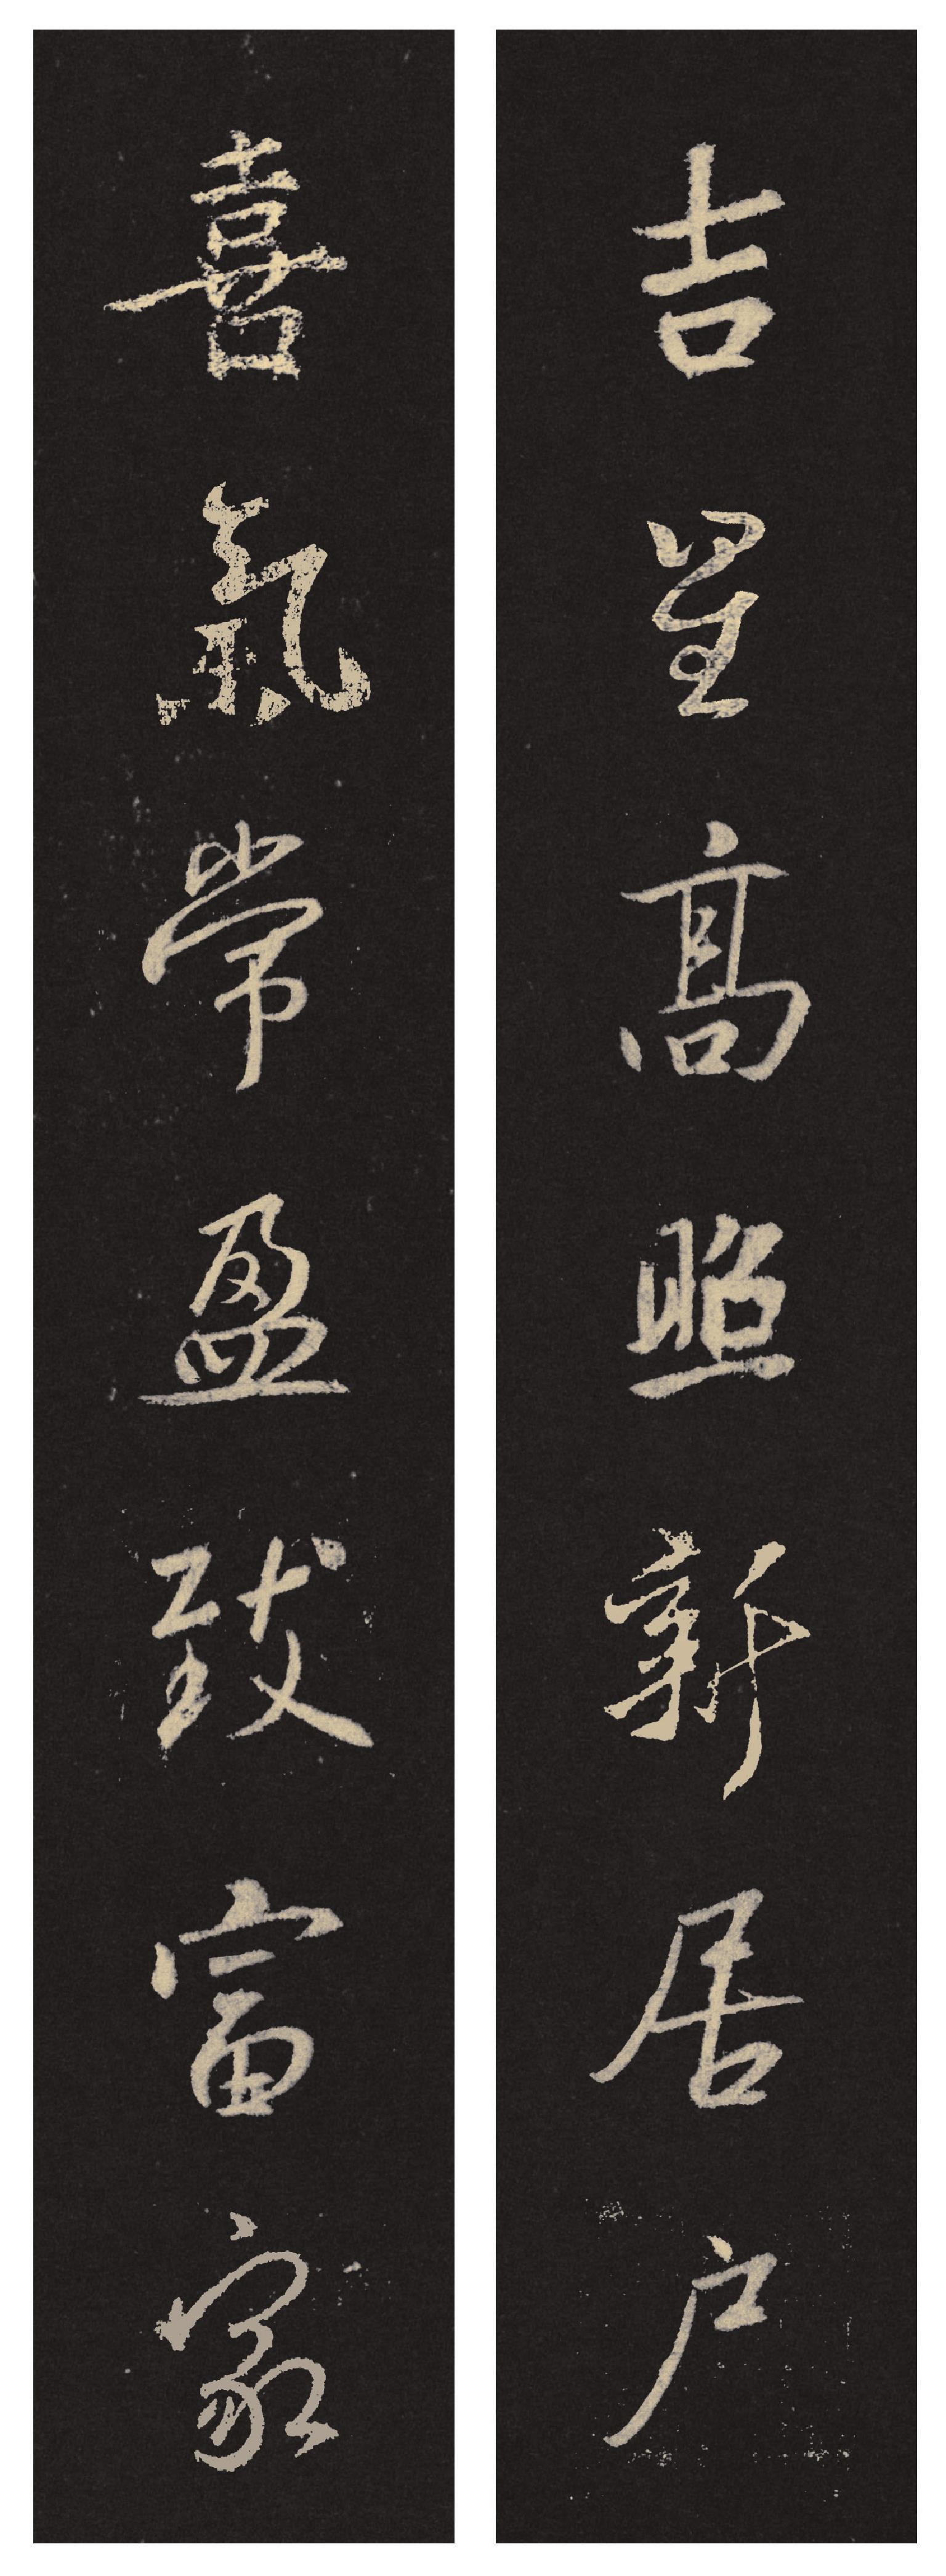 吉星高照新居户
喜氣常盈致富家